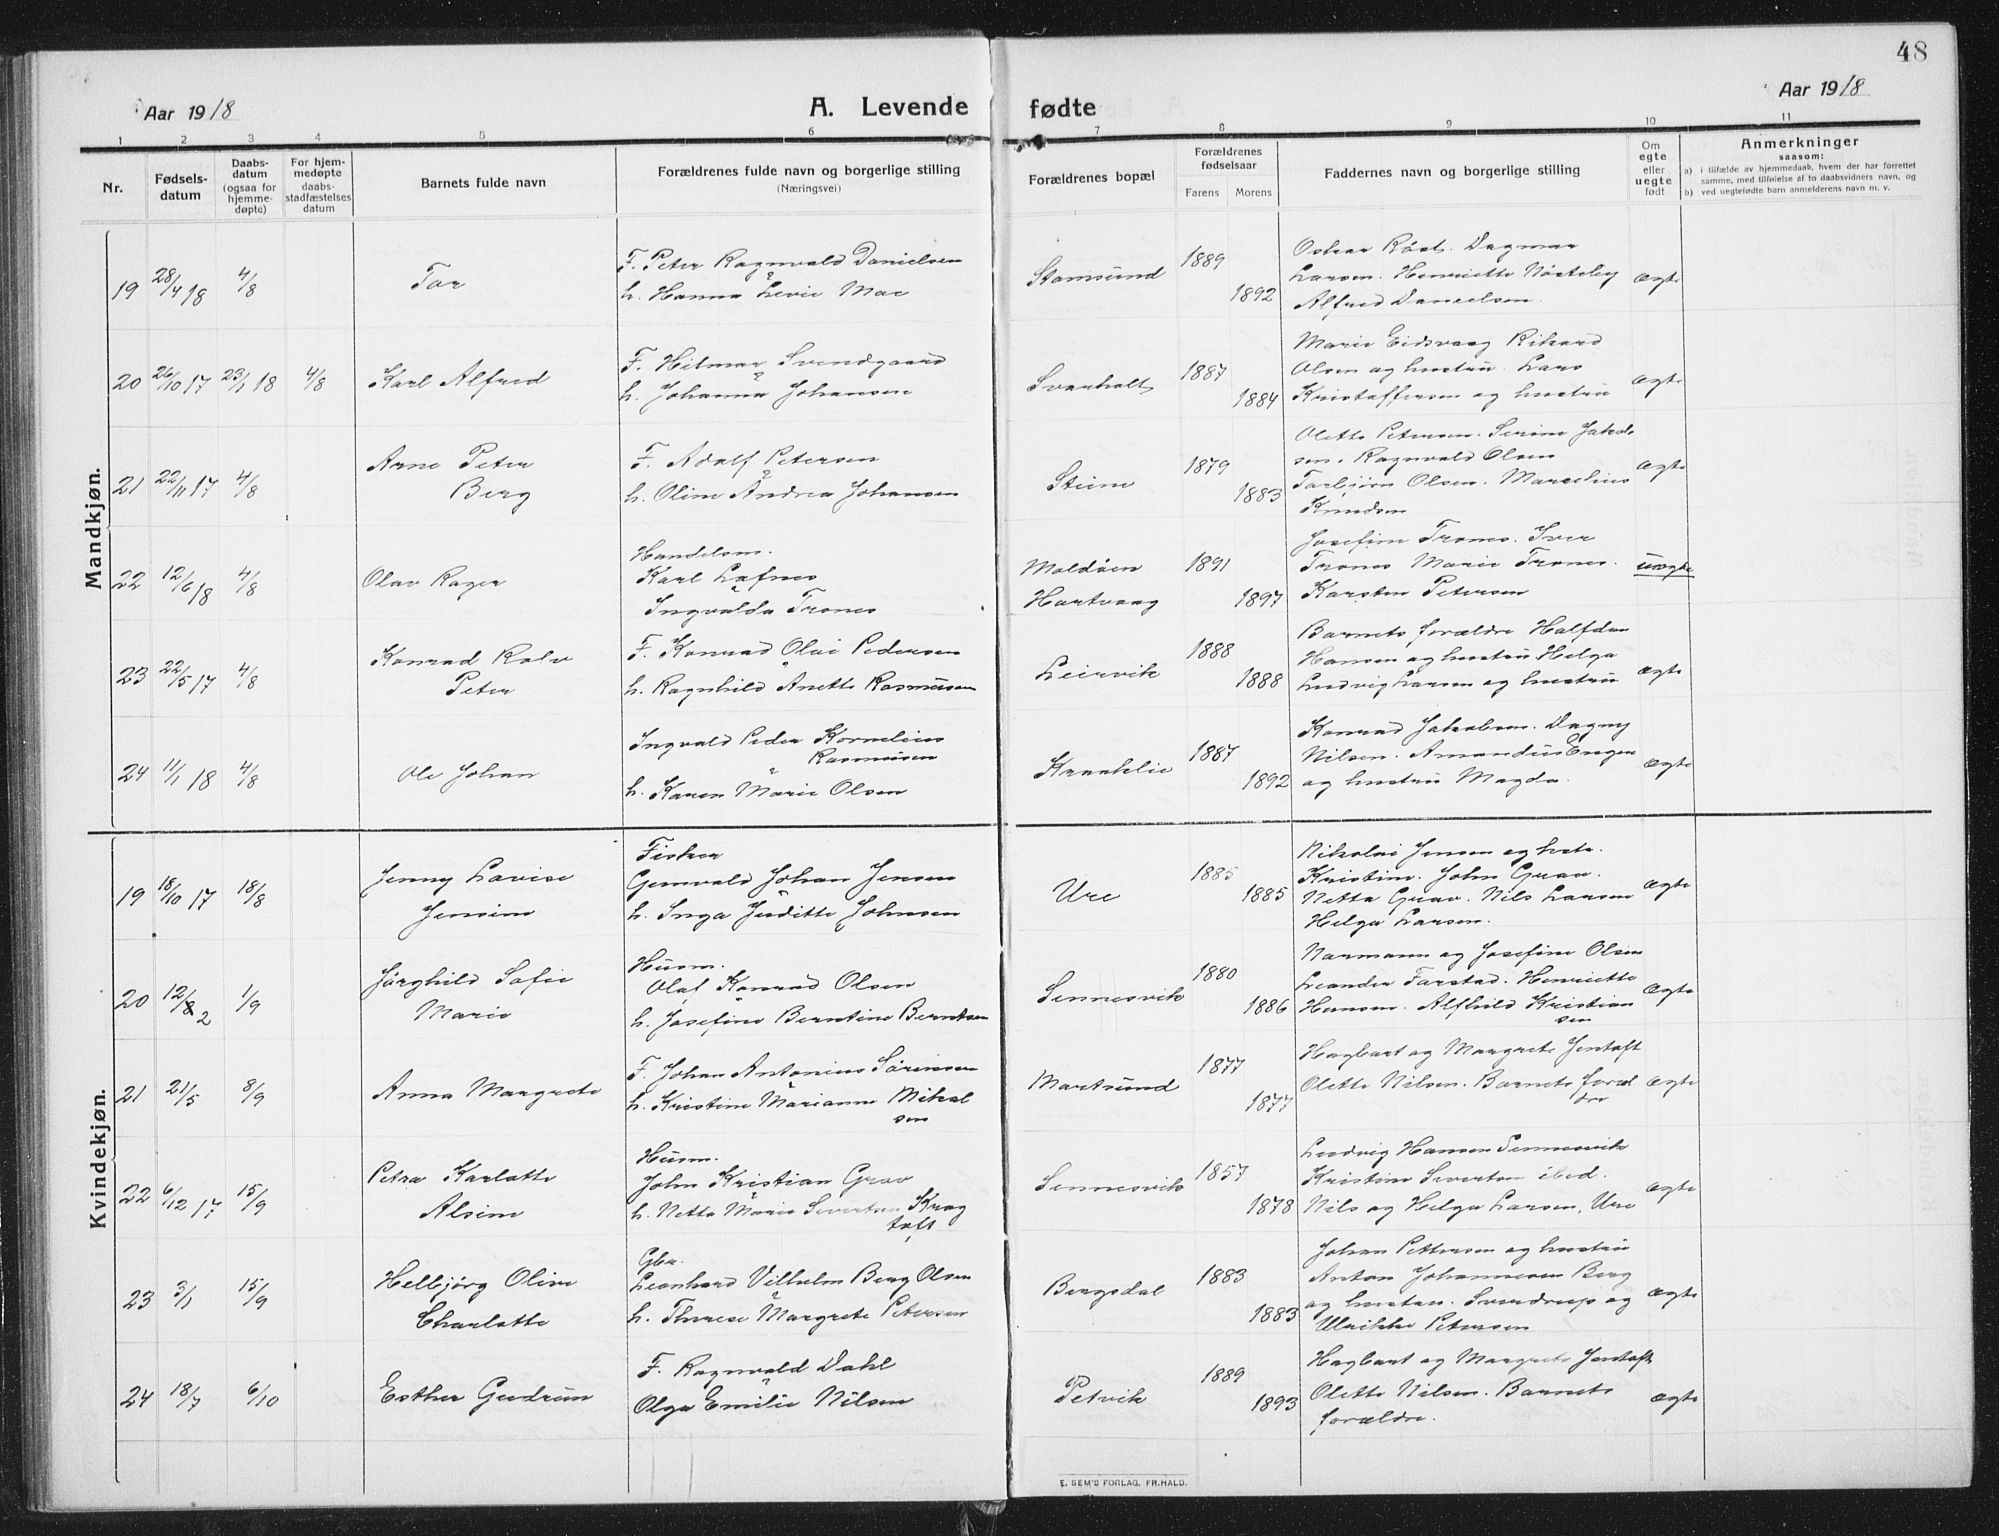 48
Aar 1918
A. Levende fødte
Aar 1918
1 2 3 4 5 6 7 8 9 10 11
Nr.
Fødsels-
datum
Daabs-
datum
(ogsaa for
hjemme-
døpte)
For hjem-
medøpte
daabs-
stadfæstelses
datum
Barnets fulde navn
Forældrenes fulde navn og borgerlige stilling
(Næringsvei)
Forældrenes bopæl
Forældrenes
fødselsaar
Farens Morens
Faddernes navn og borgerlige stilling
Om
egte
eller
uegte
født
Anmerkninger
saasom:
a) i tilfælde av hjemmedaab, hvem der har forrettet
samme, med tilføielse af to daabsvidners navn, og
b) ved uegtefødte barn anmelderens navn m. v.
Mandkjøn.
19 28/4 18 4/8 Tor
F. Peter Ragnvald Danielsen
h. Hanna Levie Moe
Stamsund 1889 1892
Oskar Røst. Dagmar
Larsen. Henriette Nøsteby
Alfred Danielsen.
ægte
20 26/10 17 23/1 18 4/8 Karl Alfred
F. Hilmar Svendgaard
h. Johanna Johansen
Svarholt 1887 1884
Marie Eidsvaag Rikard
Olsen og hustru. Lars
Kristoffersen og hustru
ægte
21 22/11 17 4/8 Arne Peter
Berg
F. Adolf Petersen
h. Oline Andrea Johansen
Steine 1879 1883
Olette Petersen. Serine Jakob-
sen. Ragnvald Olsen
Torbjørn Olsen. Marcelius
Knudsen
ægte
22 12/6 18 4/8 Olav Roger
Handelsm.
Karl Lofnes
Ingvalda Trones
Moldøen
Hartvaag
1891 1897
Josefine Trones. Iver
Trones Marie Trones.
Karsten Petersen
uægte
23 22/5 17 4/8 Konrad Rolv
Peter
F. Konrad Olai Pedersen
h. Ragnhild Anette Rasmussen
Leirvik 1888 1888
Barnets forældre Halfdan
Hansen og hustru Helga
Ludvig Larsen og hustru
ægte
24 11/1 18 4/8 Ole Johan
Ingvald Peder Kornelius
Rasmussen
h. Karen Marie Olsen
Kraaklie 1887 1892
Konrad Jakobsen. Dagny
Nilsen. Amandus Engen
og hustru Magda.
ægte
Kvindekjøn.
19 18/10 17 18/8 Jenny Lovise
Jensine
Fisker
Gunvald Johan Jensen
h. Inga Juditte Johnsen
Ure 1885 1885
Nikolai Jensen og hustr.
Kristine. John Grav.
Netta Grav. Nils Larsen
Helga Larsen.
ægte
20 12/2 1/9 Jørghild Sofie
Marie
Husm.
Olaf Konrad Olsen
h. Josefine Berntine Berntsen
Sennesvik 1880 1886
Normann og Josefine Olsen
Leander Farstad. Henriette
Hansen. Alfhild Kristian
sen
ægte
21 21/5 8/9 Anna Margrete
F. Johan Antonius Sørensen
h. Kristine Marianne Mikal
sen
Mortsund 1877 1877
Hagbart og Margrete Jentoft
Olette Nilsen. Barnets foræl
dre
ægte
22 6/12 17 15/9 Petra Karlotte
Alsine
Husm.
John Kristian Grav
h. Netta Marie Sivertsen Krog
toft
Sennesvik 1857 1878
Ludvig Hansen Sennesvik
Kristine Sivertsen ibid.
Nils og Helga Larsen, Ure
ægte
23 3/1 15/9 Helbjørg Oline
Charlotte
Gbr.
Leonhard Vilhelm Berg Olsen
h. Therese Margrete Petersen
Bergsdal 1883 1883
Johan Pettersen og hustru
Anton Johannesen Berg
og hustru. Sverdrup og
Ulrikke Petersen
ægte
24 18/7 6/10 Esther Gudrun
F. Ragnvald Dahl
Olga Emilie Nilsen
Petvik 1889 1893
Hagbart og Margrete Jentoft
Olette Nilsen. Barnets
forældre.
ægte
E. SEM'S FORLAG. FR.HALD.